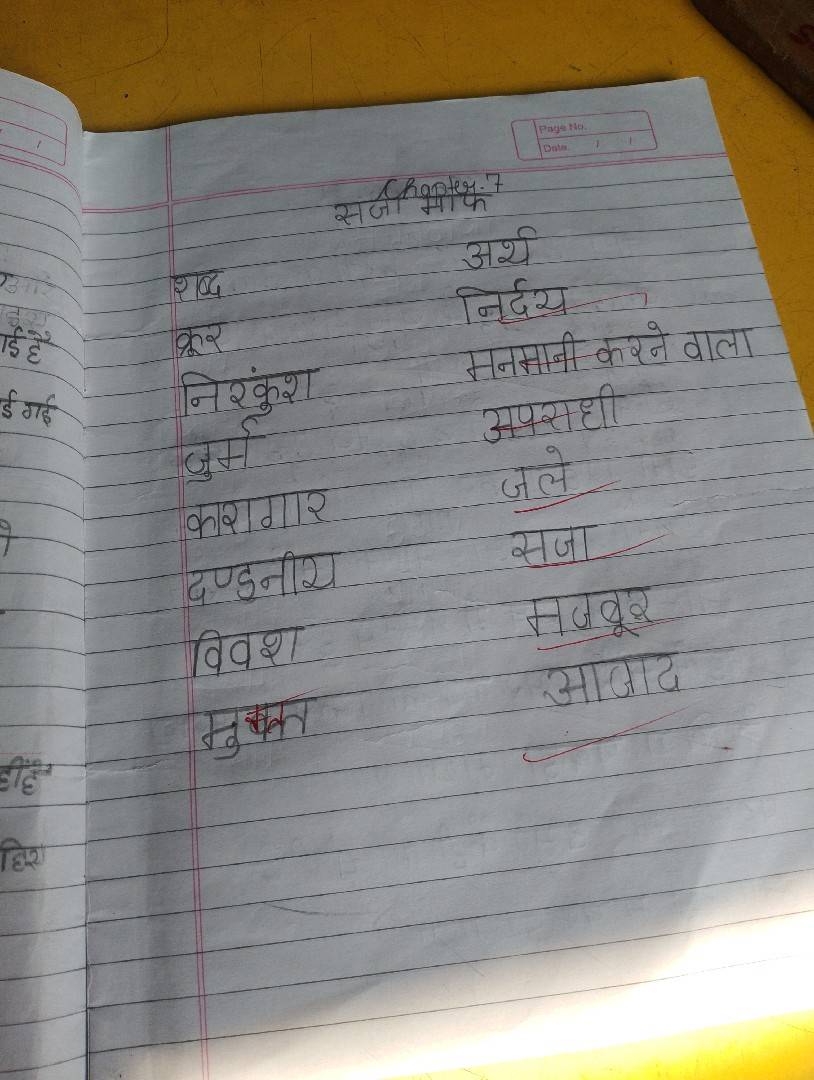 Page No.
Date. / /
Chapter-7
सजा माफ
शब्द अर्थ
क्रूर निर्दय
निरंकुश मनमानी करने वाला
जुर्म अपराधी
कारागार जले
दण्डनीय सजा
विवश मजबूर
मुक्त आजाद
ई है
ई गई